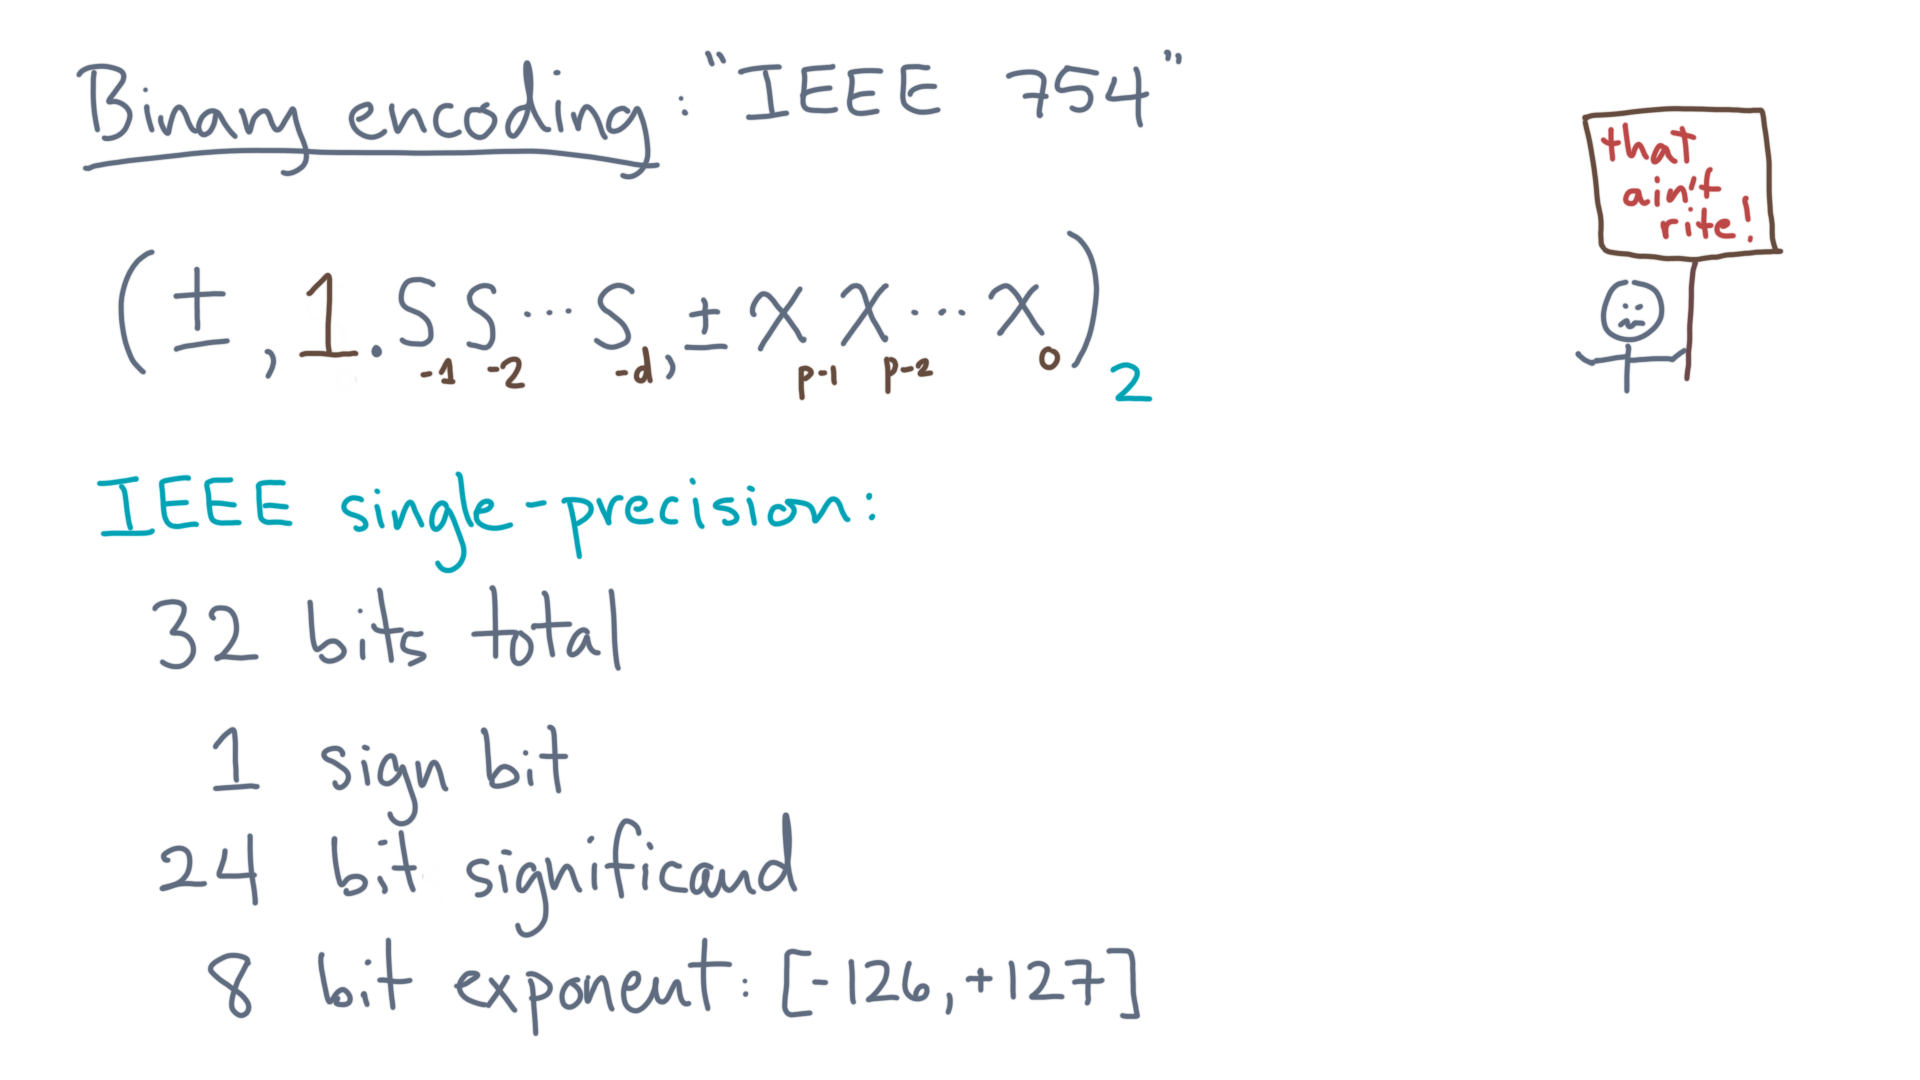 Binary encoding: "IEEE 754"
that
ain't
rite!
(±, 1.S₋₁S₋₂···S₋d, ±xₚ₋₁xₚ₋₂···x₀)₂
IEEE single-precision:
32 bits total
1 sign bit
24 bit significand
8 bit exponent: [-126, +127]